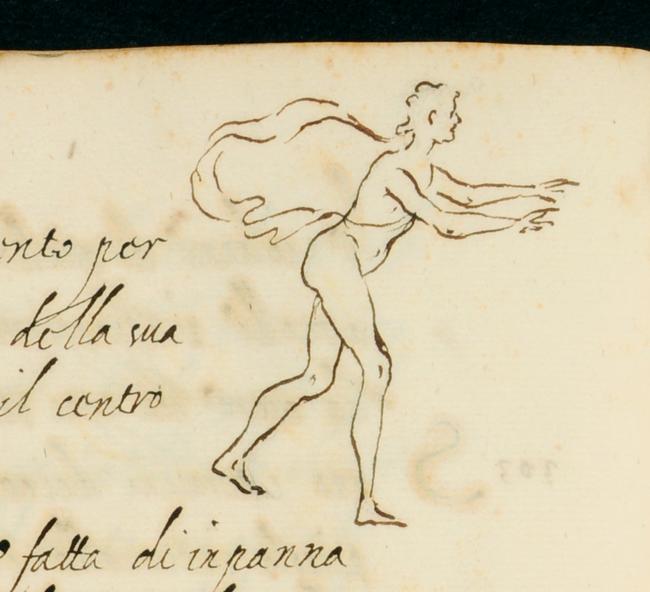 ento per
della sua
il centro
fatta di inpanna